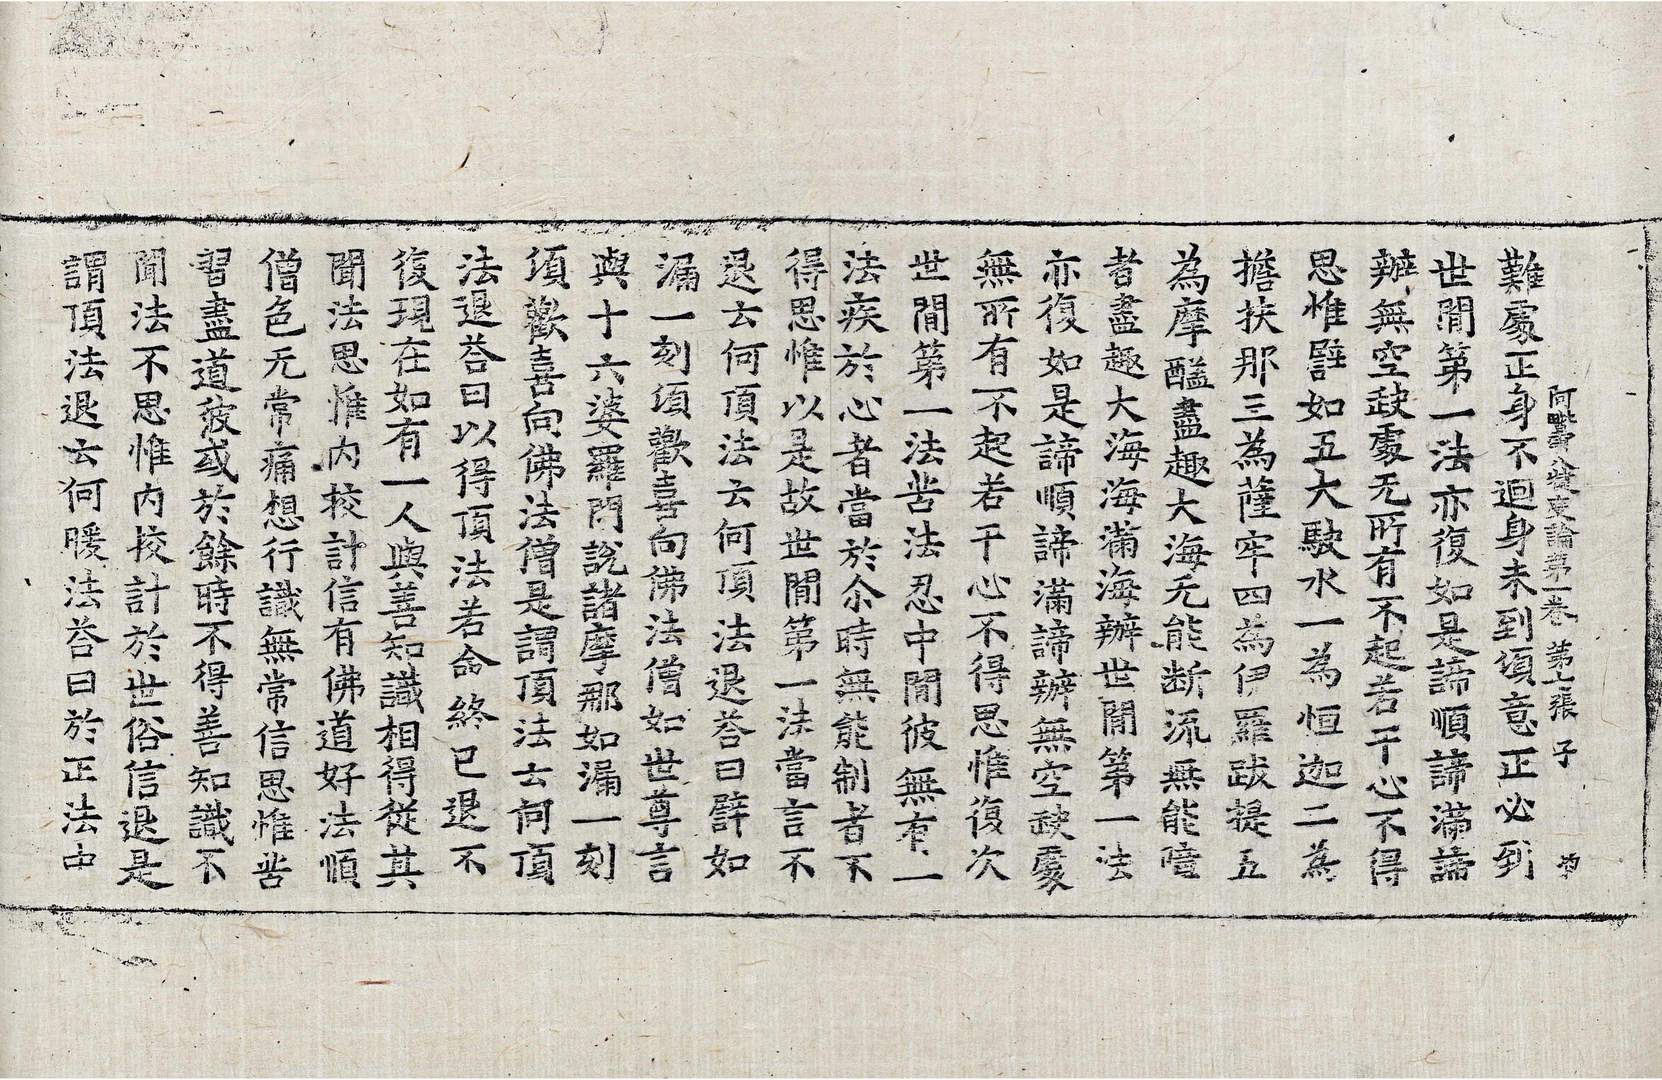 阿毗曇八犍度論第一卷 第七張 子
難處正身不迴身未到須意正必到
世間第一法亦復如是諦順諦滿諦
辦無空缺處无所有不起若干心不得
思惟譬如五大駛水一為恒迦二為
搖扶那三為薩牢四為伊羅跋提五
為摩醯盡趣大海无能断流無能障
者盡趣大海海滿海辦世間第一法
亦復如是諦順諦滿諦辦無空缺處
無所有不起若干心不得思惟復次
世間第一法苦法忍中間彼無有一
法疾於心者當於尒時無能制者不
得思惟以是故世間第一法當言不
退云何頂法云何頂法退荅曰譬如
漏一刻頃歡喜向佛法僧如世尊言
與十六婆羅門說諸摩那如漏一刻
頃歡喜向佛法僧是謂頂法云何頂
法退荅曰以得頂法若命終已退不
復現在如有一人與善知識相得從其
聞法思惟内挍計信有佛道好法順
僧色无常痛想行識無常信思惟苦
習盡道彼或於餘時不得善知識不
聞法不思惟内挍計於世俗信退是
謂頂法退云何暖法荅曰於正法中